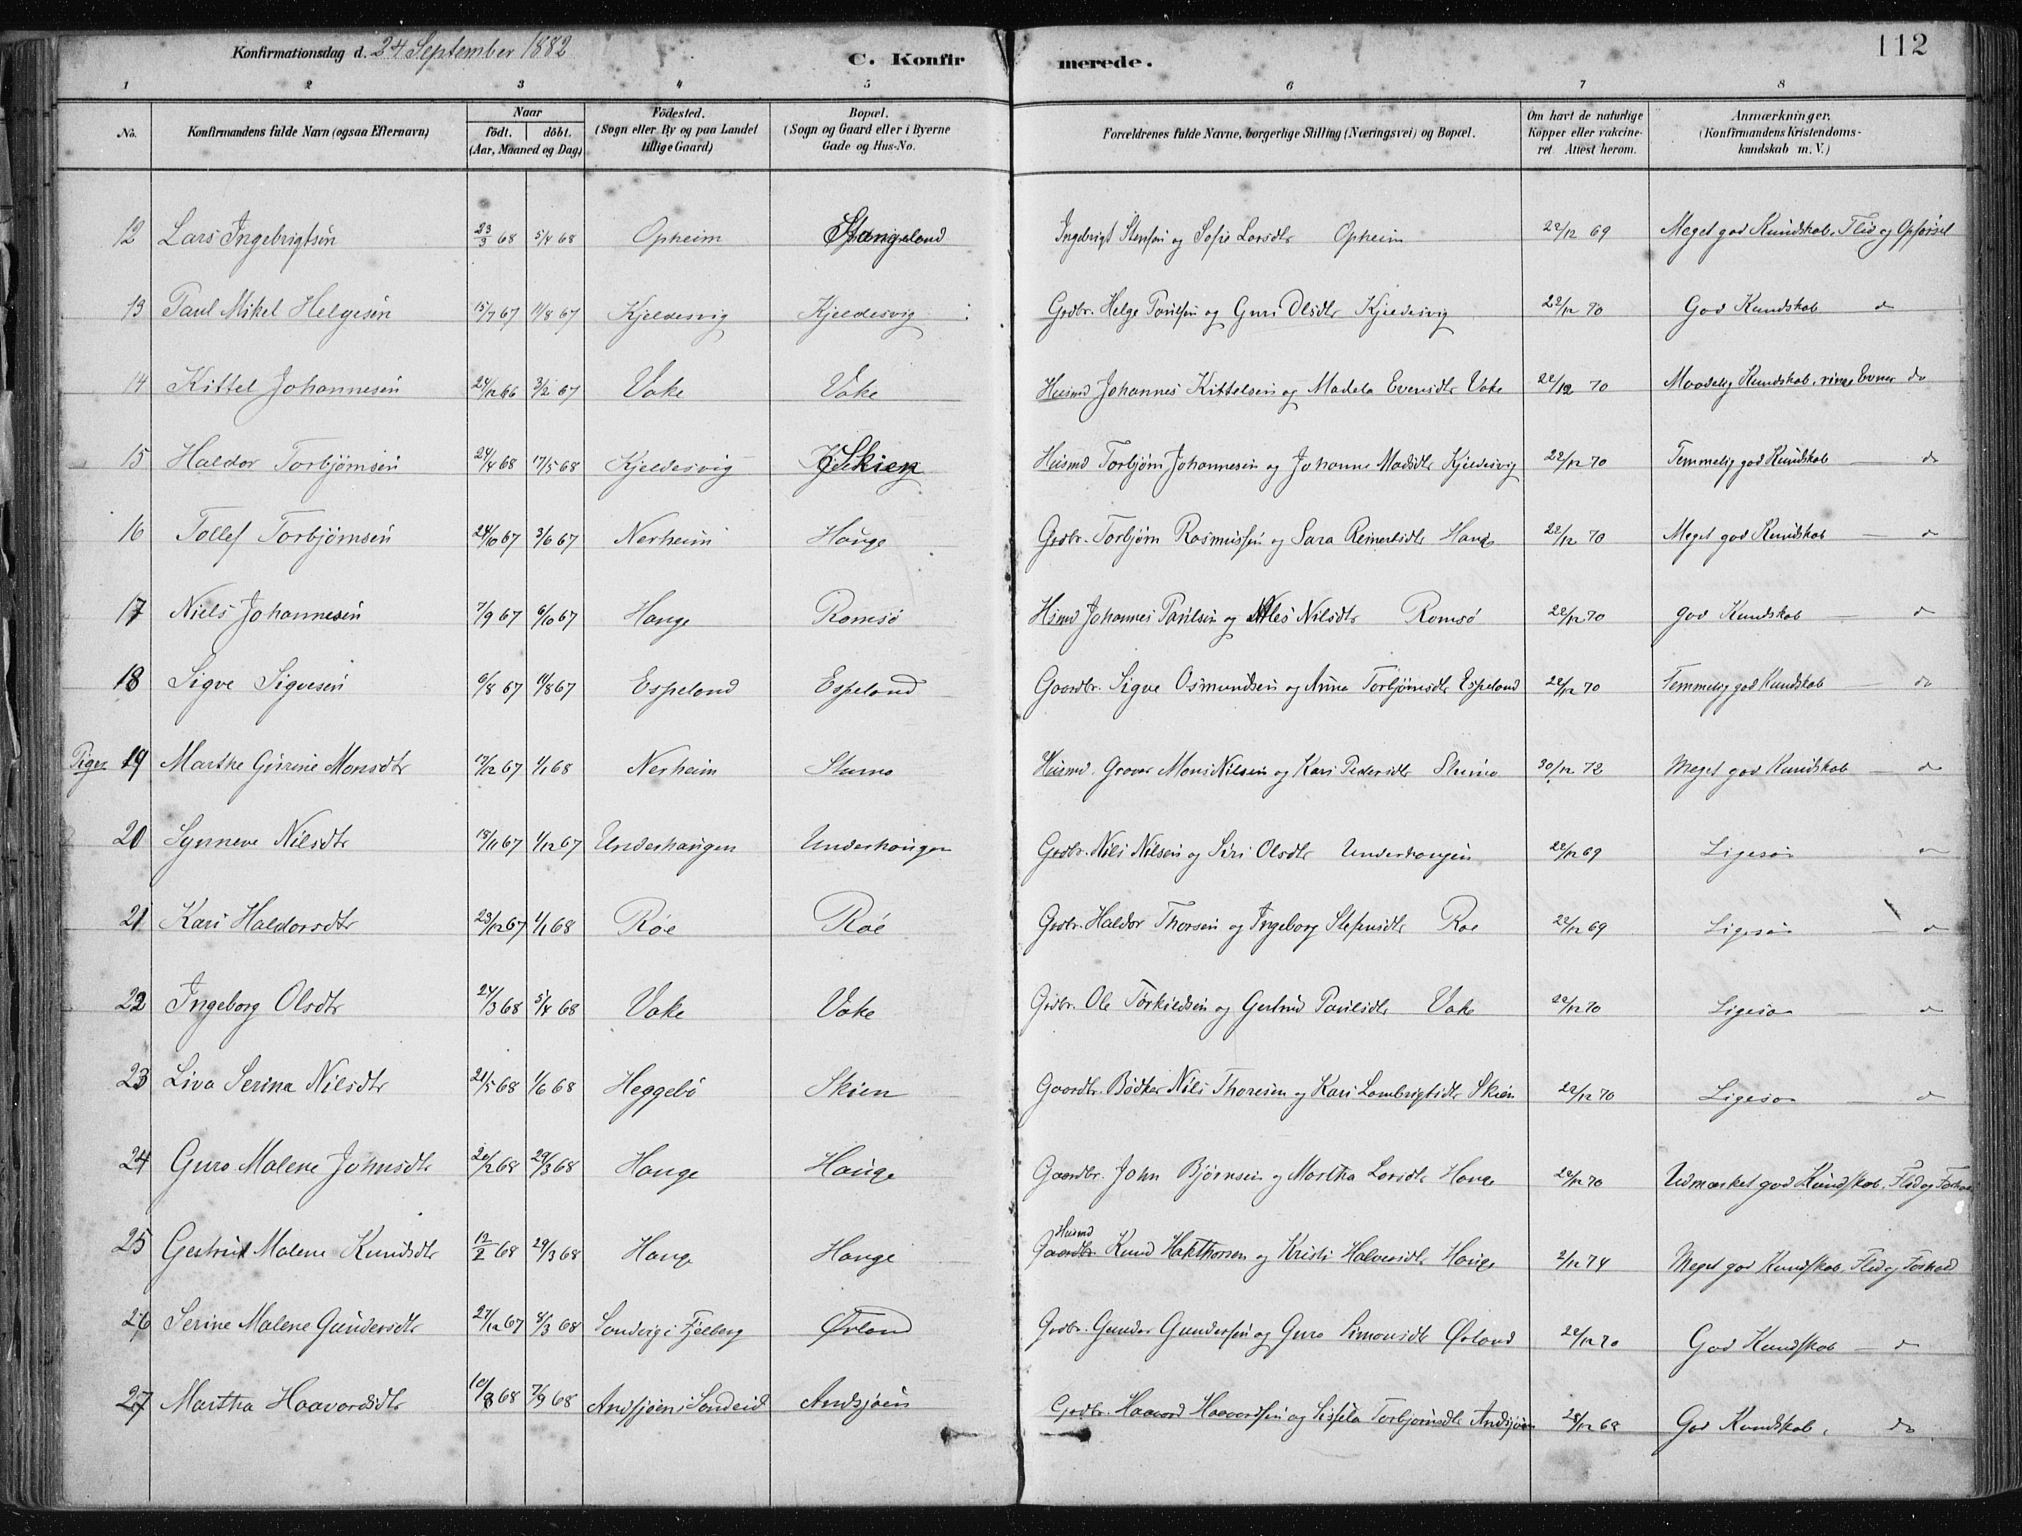 Konfirmationsdag d. 24 September 1882
C. Konfirmerede.
112
1 2 3 4 5 6 7 8
No. Konfirmandens fulde Navn (ogsaa Efternavn) Naar født. døbt. (Aar, Maaned og Dag) Fødested. (Sogn eller By og paa Landet tillige Gaard) Bopæl. (Sogn og Gaard eller i Byerne Gade og Hus-No. Forældrenes fulde Navne, borgerlige Stilling (Næringsvei) og Bopæl. Om havt de naturlige Kopper eller vakcineret Attest herom. Anmærkninger. (Konfirmandens Kristendomskundskab m. V.)
12 Lars Ingebrigtsen 23/3 68 5/4 68 Opheim Stangeland Ingebrigt Stensen og Sofie Larsdtr Opheim 22/12 69 Meget god Kundskab, Flid og Opførsel
13 Paul Mikel Helgesen 15/7 67 11/8 67 Kjeldesvig Kjeldesvig Grdbr. Helge Paulsen og Guri Olsdtr Kjeldesvig 22/12 70 God Kundskab do
14 Kittel Johannesen 24/12 66 3/2 67 Vake Vake Husmd Johannes Kittelsen og Madela Evensdtr Vake 22/12 70 Maadelig Kundskab, ringe Evner do
15 Haldor Torbjørnsen 24/4 68 17/5 68 Kjeldesvig Skien Husmd Torbjørn Johannesen og Johanne Madsdtr Kjeldesvig 22/12 70 Temmelig god Kundskab — do
16 Tollef Torbjørnsen 24/10 67 3/6 67 Nerheim Hauge Grdbr. Torbjørn Rasmussen og Sara Reinertsdtr Hauge 22/12 70 Meget god Kundskab — do
17 Niels Johannesen 7/9 67 6/10 67 Hauge Romsø Husmd Johannes Paulsen og Ales Nilsdtr Romsø 22/12 70 god Kundskab — do
18 Sigve Sigvesen 6/8 67 11/8 67 Espeland Espeland Gaardbr. Sigve Osmundsen og Anna Torbjørnsdtr Espeland 22/12 70 Temmelig god Kundskab — do
Piger 19 Marthe Gurine Monsdtr 17/12 67 1/1 68 Nerheim Stumo Husmd. Graver Mons Nilsen og Kari Pedersdtr Stumo 30/12 72 Meget god Kundskab — do
20 Synneve Nilsdtr 18/11 67 1/12 67 Underhaugen Underhaugen Grdbr. Nils Nilsen og Siri Olsdtr Underhaugen 22/12 69 Ligesaa do
21 Kari Haldorsdtr 23/12 67 1/1 68 Røe Røe Grdbr. Haldor Thorsen og Ingeborg Stefensdtr Røe 22/12 69 Ligesaa — do
22 Ingeborg Olsdtr 24/3 68 5/4 68 Vake Vake Grdbr. Ole Torkildsen og Gertrud Paulsdtr Vake 22/12 70 Ligesaa — do
23 Liva Serina Nilsdtr 21/5 68 1/6 68 Heggebø Skien Gaardbr. Bødker Nils Thoresen og Kari Lambrigtsdtr Skien 22/12 70 Ligesaa — do
24 Guro Malene Johnsdtr 20/2 68 29/3 68 Hauge Hauge Gaardbr. John Bjørnsen og Martha Larsdtr Hauge 22/12 70 Udmærket god Kundskab, Flid og Forhold
25 Gertrud Malene Knudsdtr 12/2 68 29/3 68 Hauge Hauge Husmd Gaardbr. Knud Hakthorsen og Kristi Halvorsdtr Hauge 2/12 74 Meget god Kundskab, Flid og Forhold
26 Serine Malene Gundersdtr 27/12 67 8/3 68 Sandvig i Fjelberg Ørland Grdbr. Gunder Gundersen og Guro Simonsdtr Ørland 22/12 70 God Kundskab — do
27 Martha Haavardsdtr 10/8 68 7/9 68 Andsjøen i Sandeid Andsjøen Grdbr. Haavard Haavardsen og Sissela Torbjørnsdtr Andsjøen 28/12 68 God Kundskab. do